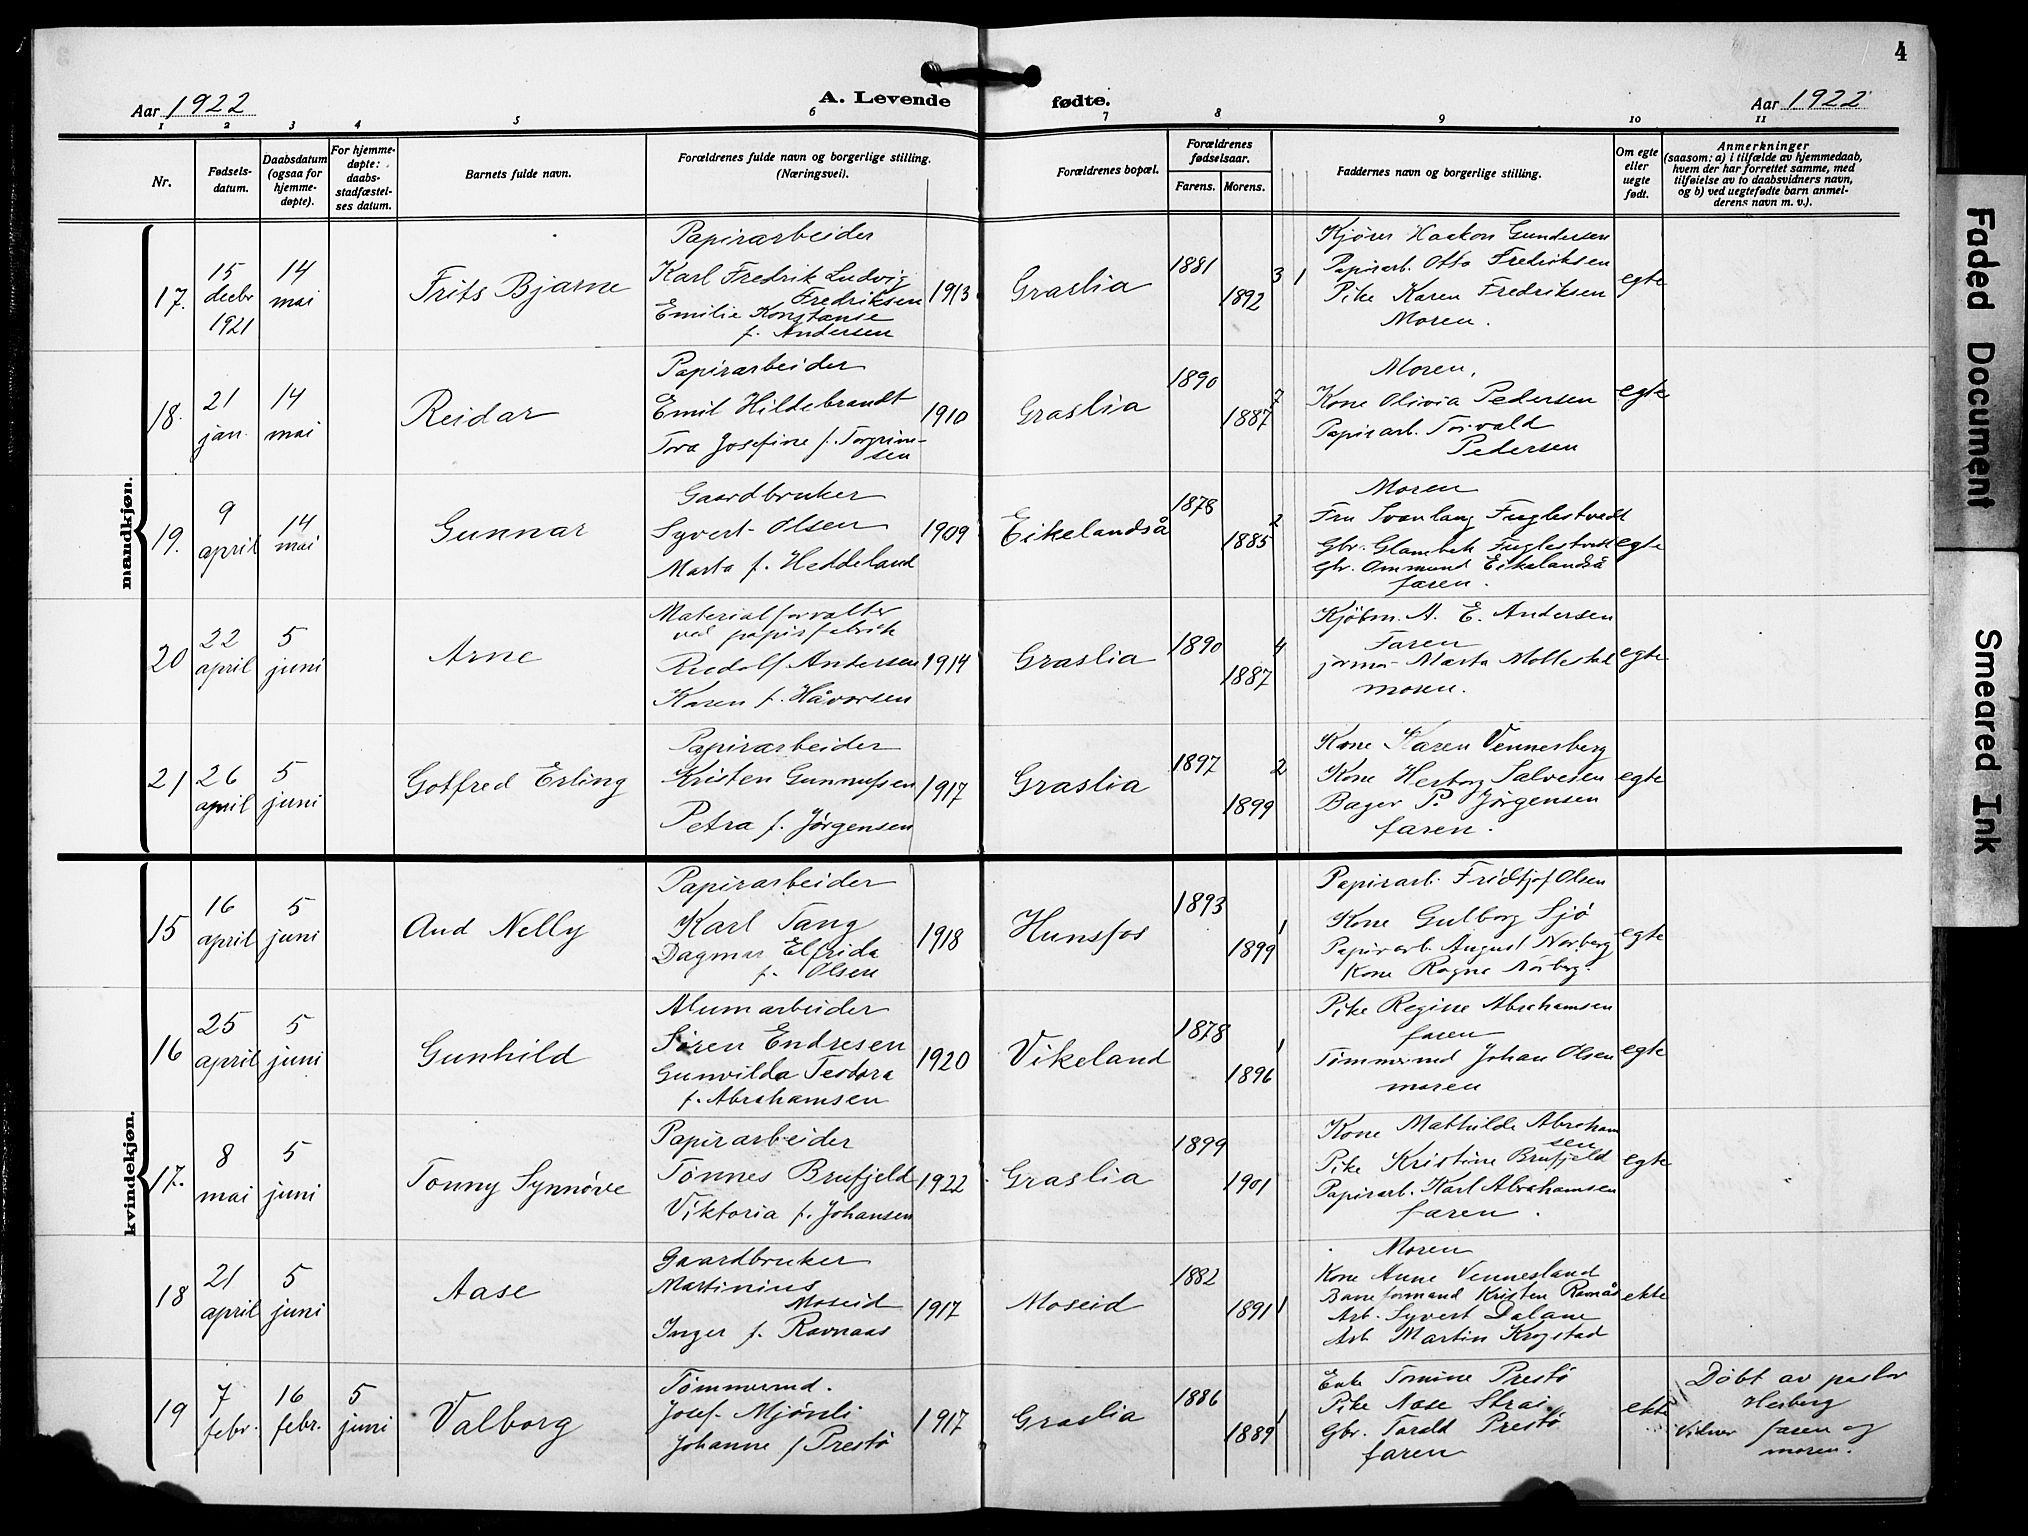 4
Aar 1922
A. Levende fødte.
Aar 1922
1 2 3 4 5 6 7 8 9 10 11
Nr.
Fødsels-
datum.
Daabsdatum
(ogsaa for
hjemme-
døpte).
For hjemme-
døpte:
daabs-
stadfæstel-
ses datum.
Barnets fulde navn.
Forældrenes fulde navn og borgerlige stilling.
(Næringsvei).
Forældrenes bopæl.
Forældrenes
fødselsaar.
Farens. Morens.
Faddernes navn og borgerlige stilling.
Om egte
eller
uegte
født.
Anmerkninger
(saasom: a) i tilfælde av hjemmedaab,
hvem der har forrettet samme, med
tilføielse av to daabsvidners navn,
og b) ved uegtefødte barn anmel-
derens navn m. v.).
mandkjøn.
17.
15
decbr
1921
14
mai
Frits Bjarne
Papirarbeider
Karl Fredrik Ludvig
Fredriksen
Emilie Konstanse
f. Andersen
1913
Graslia
1881
1892
3 1
Kjører Haakon Gundersen
Papirarb. Otto Fredriksen
Pike Karen Fredriksen
Moren.
egte
18.
21
jan.
14
mai
Reidar
Papirarbeider
Emil Hildebrandt
Tora Josefine f. Torgrim-
sen
1910
Graslia
1890
1887
7
Moren,
Kone Olivia Pedersen
Papirarb. Torvald
Pedersen
egte
19.
9
april
14
mai
Gunnar
Gaardbruker
Syvert Olsen
Marta f. Heddeland
1909
Eikelandså
1878
1885
2
Moren
Fru Svanlaug Fuglestvedt
Gbr. Glambek Fuglestvedt
Gbr. Ommund Eikelandså
faren.
egte
20
22
april
5
juni
Arne
Materialforvalter
ved papirfabrik
Rudolf Andersen
Karen f. Håvorsen
1914
Graslia
1890
1887
4
Kjøbm. A. E. Andersen
Faren
jormor Marta Mollestad
moren.
egte
21
26
april
5
juni
Gotfred Erling
Papirarbeider
Kristen Gunnufsen
Petra f. Jørgensen
1917
Graslia
1897
1899
2
Kone Karen Vennesberg
Kone Herborg Salvesen
Bager P. Jørgensen
faren.
egte
kvindekjøn.
15
16
april
5
juni
Aud Nelly
Papirarbeider
Karl Tang
Dagmar Elfrida
f. Olsen
1918
Hunsfos
1893
1899
1
Papirarb. Fridtjof Olsen
Kone Gulborg Sjö
Papirarb. August Norberg
Kone Ragna Norberg.
egte
16
25
april
5
juni
Gunhild
Alumarbeider
Søren Endresen
Gunvilda Teodora
f. Abrahamsen
1920
Vikeland
1878
1896
1
Pike Regine Abrahamsen
faren
Tømmermd Johan Olsen
moren
egte
17.
8
mai
5
juni
Tonny Synnøve
Papirarbeider
Tønnes Brufjeld
Viktoria f. Johansen
1922
Graslia
1899
1901
Kone Mathilde Abraham
sen
Pike Kristine Brufjeld
Papirarb. Karl Abrahamsen
faren.
egte
18
21
april
5
juni
Aase
Gaardbruker
Martinius
Moseid
Inger f. Ravnaas
1917
Moseid
1882
1891
1
Moren
Kone Anne Vennesland
Baneformand Kristen Ravnås
Arb. Syvert Dalane
Arb Martin Krogstad
ekte
19
7
febr.
16
febr.
5
juni
Valborg
Tømmermd.
Josef Mjönli
Johanne f Prestö
1917
Graslia
1886
1889
1
Enke Tomine Prestö
Pike Aase Strai
Gbr. Torald Prestö
faren
ekte
Döbt av pastor
Heiberg
Vidner faren og
moren.
Faded Document
Smeared Ink